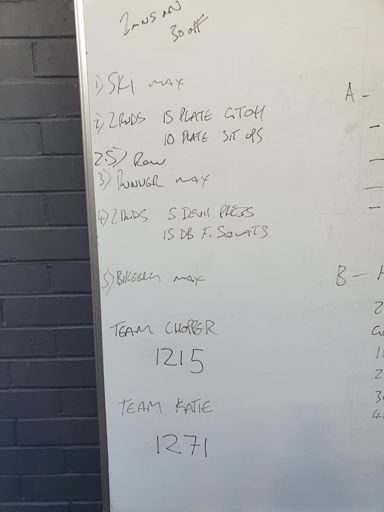 2 MINS ON
30 off
1) SKI MAX
2) 2 RNDS 15 PLATE GTOH
10 PLATE SIT UPS
2.5) Row
3) RUNNER MAX
4) 2 RNDS 5 DEVIL PRESS
15 DB F. SQUATS
5) BIKEERG MAX
TEAM CHOPPER
1215
TEAM KATIE
1271
A -
B -